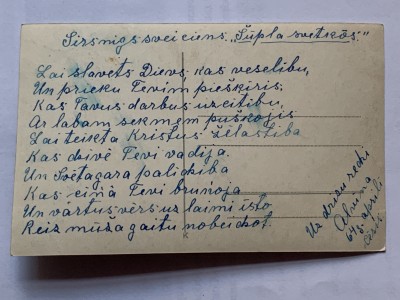 Sirsnigs sveiciens „Šūpļa svētkōs."
Lai slavēts Dievs kas veselību,
Un prieku Tevim piešķiris.
Kas Tavus darbus uzcītību,
Ar labām sekmēm puškojis
Lai teikta Kristus žēlastība
Kas dzīvē Tevi vadija.
Un Svētāgara palidzība
Kas ciņā Tevi bruņoja
Un vārtus vērs uz laimi īsto
Reiz mūža gaitu nobeidzot.
Uz drīzu redzi
64 5. aprīlī